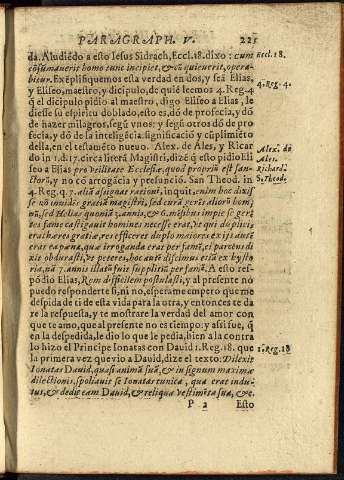 PARAGRAPH. V. 221
da. Aludiēdo a esto Iesus Sidrach, Eccl.18. dixo: cum Eccl. 18.
cōsumauerit homo tunc incipiet, & cū quieuerit, opera-
bitur. Exēplifiquemos esta verdad en dos, y sea Elias,
y Eliseo, maestro, y dicipulo, de quiē leemos 4. Reg. 4 4. Reg. 4.
q̄ el dicipulo pidio al maestro, digo Eliseo a Elias, le
diesse su espiritu doblado, esto es, dō de profecia, y dō
de hazer milagros, segū vnos; y segū otros dō de pro
fecia, y dō de la inteligēcia, significació y cūplimiēto
della, en el testamēto nueuo. Alex. de Ales, y Ricar Alex. de
do in 1. d. 17. circa literā Magistri, dizē q̄ esto pidio Eli Ales.
seo a Elias pro vtilitate Ecclesiæ quod proprium est san- Richard.
ctorū, y no cō arrogācia y presunciō. San Theod. in S. Theod.
4. Reg. q. 7. aliā asignat rationē, inquit, enim hoc dixis
se nō inuidēs gratiā magistri, sed curā gerēs aliorū homi
nū, sed Helias quoniā 7. annis, & 6. mēsibus impie se gerē
tes fame castigauit homines necesse erat, vt qui duplicis
erat hæres gratiæ, res efficeret duplo maiores extitit autē
erat cæpana, quæ irroganda erat per famē, ei parētus di
xit obdurasti, vt peteres, hoc autē discimus etiā ex hysto
ria, nā 7. annis illatū fuit suppliciū per famē. A esto res-
pōdio Elias, Rem difficilem postulasti, y al presente no
puedo responderte si, ni no, espera mēpero que me
despida de ti de esta vida para la otra, y entonces te da
re la respuesta, y te mostrare la verdad del amor con
que te amo, que al presente no es tiempo: y assi fue, q̄
en la despedida, le dio lo que le pedia, bien a la contra
lo hizo el Principe Ionatas con Dauid 1. Reg. 18. que 1. Reg. 18
la primera vez que vio a Dauid, dize el texto: Dilexit
Ionatas Dauid, quasi animā suā, & in signum maximæ
dilectionis, spoliauit se Ionatas tunica, qua erat indu-
tus, & dedit eam Dauid, & reliqua vestimēta sua, &c.
P 2 Esto